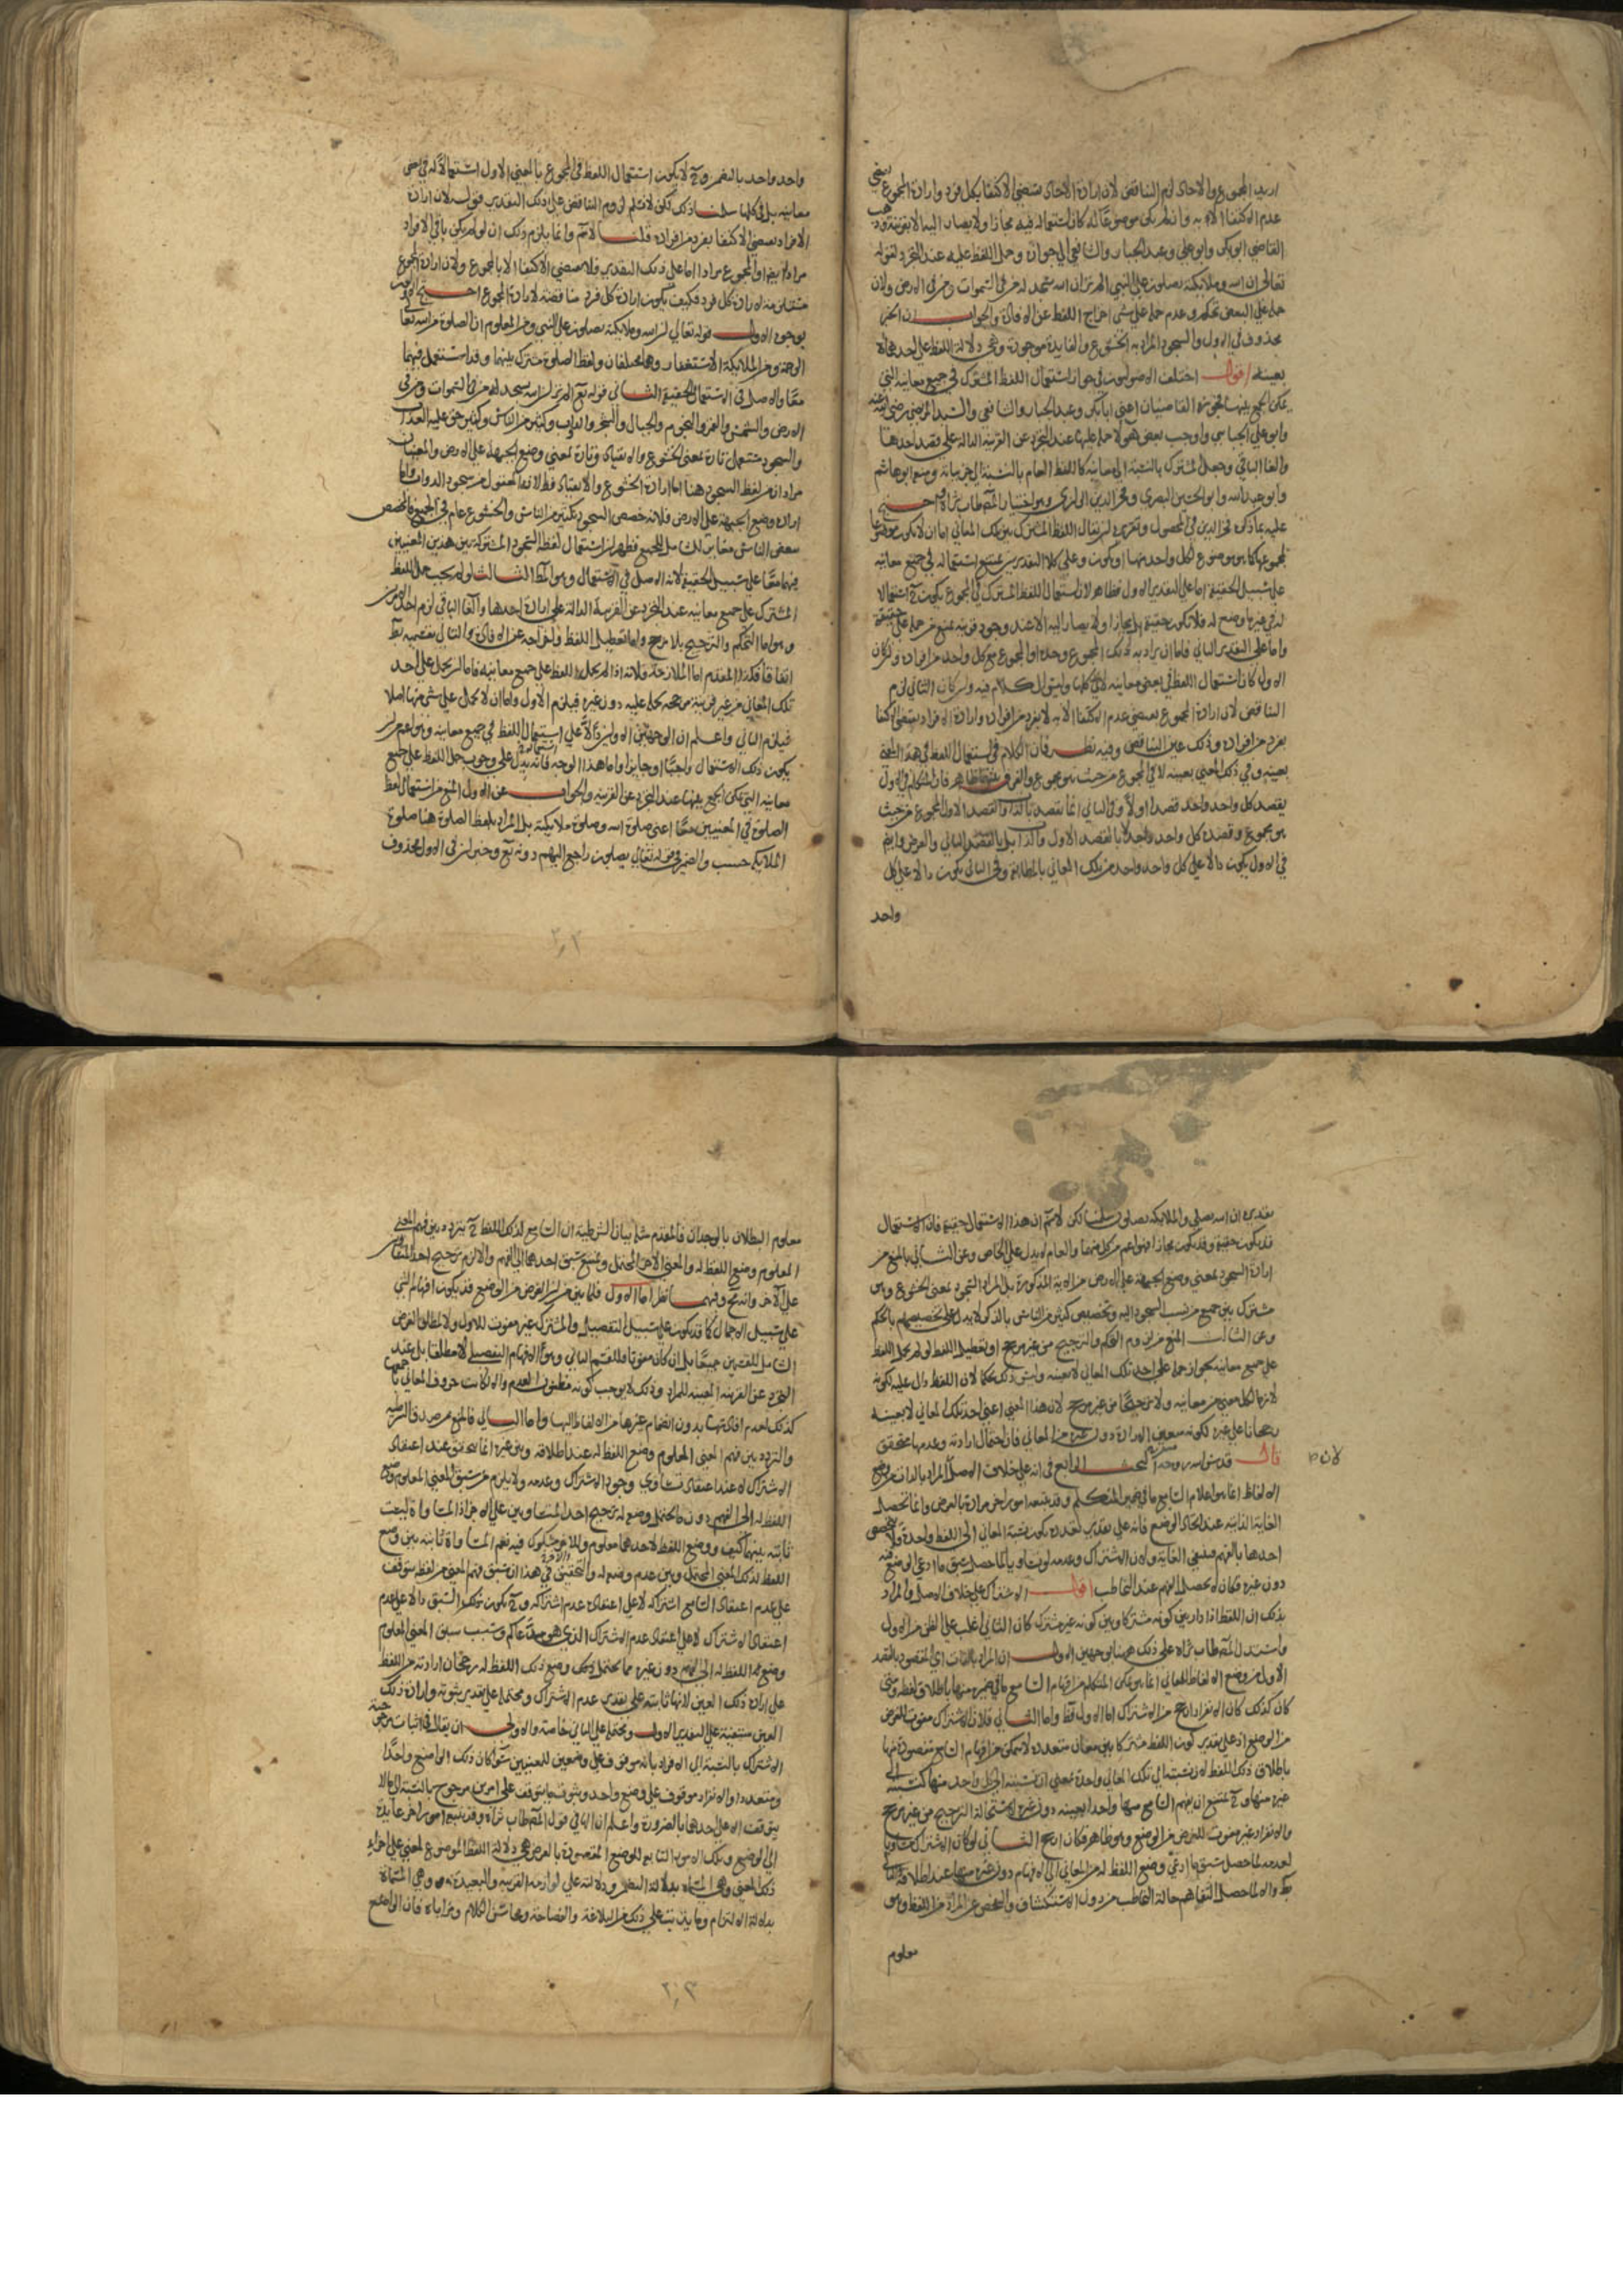 اريد المجموع والاحاد لزم التناقض لان ارادة الاحاد تقتضي الاكتفا بكل فرد وارادة المجموع تقتضي
عدم الاكتفا الا به وان لم يكن موضوعا له كان استعماله فيه مجازا ولا يصار اليه الا بقرينة وذهب
القاضي ابو بكر وابو علي وعبد الجبار والشافعي الى جوازه وحمل اللفظ عليه عند التجرد لقوله
تعالى ان الله وملايكته يصلون على النبي الم تر ان الله يسجد له من في السموات ومن في الارض ولان
حمله على البعض تحكم وعدم حمله على شي اخراج اللفظ عن الافادة والجواب ان الخبر
محذوف في الاول والسجود المراد به الخشوع والفايدة موجودة وهي دلالة اللفظ على احدها لا
بعينه اقول اختلف الاصوليون في جواز استعمال اللفظ المشترك في جميع معانيه التي
يمكن الجمع بينها فجوزه القاضيان اعني ابا بكر وعبد الجبار والشافعي والسيد المرتضى رضي الله عنه
وابو علي الجبايي واوجب بعض هولا حمله عليها عند التجرد عن القرينة الدالة على قصد احدها
والغا الباقي وجعل المشترك بالنسبة الى معانيه كاللفظ العام بالنسبة الى جزيياته ومنعه ابو هاشم
وابو عبد الله وابو الحسين البصري وفخر الدين الرازي وهو اختيار المصطاب ثراه احتج
عليه بما ذكره فخر الدين في المحصول وتقريره ان يقال اللفظ المشترك بين تلك المعاني اما ان لا يكون موضوعا
لمجموعها كما هو موضوع لكل واحد منها او يكون وعلى كلا التقديرين يمتنع استعماله في جميع معانيه
على سبيل الحقيقة اما على التقدير الاول فظاهر لان استعمال اللفظ المشترك في المجموع يكون ح استعمالا
له في غير ما وضع له فلا يكون حقيقة بل مجازا ولا يصار اليه الا عند وجود قرينة تمنع من حمله على حقيقة
واما على التقدير الثاني فاما ان يراد به ذلك المجموع وحده او المجموع مع كل واحد من افراده وان كان
الاول كان استعمال اللفظ في بعض معانيه لا في كلها وليس الكلام فيه وان كان الثاني لزم
التناقض لان ارادة المجموع يقتضي عدم الاكتفا الا به لا بفرد من افراده وارادة الافراد يقتضي الاكتفا
بفرد من افراده وذلك عين التناقض وفيه نظر فان الكلام في استعمال اللفظ في هذا المعنى
بعينه وفي ذلك المعنى بعينه لا في المجموع من حيث هو مجموع والفرق بينهما ظاهر فان المتكلم في الاول
يقصد كل واحد واحد قصدا اولا وفي الثاني انما يقصد بالذات والقصد الاول المجموع من حيث
هو مجموع وقصده كل واحد واحد لا بالقصد الاول والذات بل بالقصد الثاني والعرض وايضا
في الاول يكون دالا على كل واحد واحد من تلك المعاني بالمطابقة وفي الثاني يكون دالا على كل
واحد
واحد واحد بالتضمن وح لا يكون استعمال اللفظ في المجموع بالمعنى الاول استعمالا له في بعض
معانيه بل في كلها سلمنا ذلك لكن لا نسلم لزوم التناقض على ذلك التقدير قوله لان ارادة
الافراد يقتضي الاكتفا بفرد من افراده قلنا لا نسلم وانما يلزم ذلك ان لو لم يكن باقي الافراد
مرادا ايضا والمجموع مرادا اما على ذلك التقدير فلا يقتضي الاكتفا الا بالمجموع ولان ارادة المجموع
مستلزمة لارادة كل فرد فكيف يكون ارادة كل فرد مناقضة لارادة المجموع احتج
بوجوه الاول قوله تعالى ان الله وملايكته يصلون على النبي ومن المعلوم ان الصلوة من الله تعا
الرحمة ومن الملايكة الاستغفار وهما مختلفان ولفظ الصلوة مشترك بينهما وقد استعمل فيهما
معا والاصل في الاستعمال الحقيقة الثاني قوله تع الم تر ان الله يسجد له من في السموات ومن في
الارض والشمس والقمر والنجوم والجبال والشجر والدواب وكثير من الناس وكثير حق عليه العذاب
والسجود يستعمل تارة بمعنى الخشوع والانقياد وتارة بمعنى وضع الجبهة على الارض والمعنيان
مرادان من لفظ السجود هنا اما ارادة الخشوع والانقياد فظ لانه المعقول من سجود الدواب واما
ارادة وضع الجبهة على الارض فلانه خصص السجود بكثير من الناس والخشوع عام في الجميع فالتخصيص
ببعض الناس مع شامل للجميع فظهر ان استعمال لفظ السجود المشترك بين هذين المعنيين
فيهما معا على سبيل الحقيقة لانه الاصل في الاستعمال وهو المط الثالث لو لم يجب حمل اللفظ
المشترك على جميع معانيه عند التجرد عن القرينة الدالة على ارادة احدها والغا الباقي لزم احد الامرين
وهو اما التحكم والترجيح بلا مرجح واما تعطيل اللفظ واخراجه عن الافادة والتالي بقسميه بط
اتفاقا فكذا المقدم اما الملازمة فلانه اذا لم يحمل اللفظ على جميع معانيه فاما ان يحمل على احد
تلك المعاني من غير قرينة مرجحة بحمله عليه دون غيره فيلزم الاول واما ان لا يحمل على شي منها اصلا
فيلزم الثاني واعلم ان الوجهين الاولين دلا على استعمال اللفظ في جميع معانيه وهو اعم من ان
يكون ذلك الاستعمال واجبا او جايزا واما هذا الوجه فانه يدل على وجوب حمل اللفظ على جميع
معانيه التي يمكن الجمع بينها عند التجرد عن القرينة والجواب عن الاول المنع من استعمال لفظ
الصلوة في المعنيين معا اعني صلوة الله وصلوة ملايكته بل المراد بلفظ الصلوة هنا صلوة
الملايكة حسب والضمير في قوله تعالى يصلون راجع اليهم دونه تع وخبر ان في الاول محذوف
تقديره ان الله يصلي والملايكة يصلون سلمنا لكن لا نسلم ان هذا الاستعمال حقيقة فان الاستعمال
قد يكون حقيقة وقد يكون مجازا فهو اعم من كل منهما والعام لا يدل على الخاص وعن الثاني بالمنع من
ارادة السجود بمعنى وضع الجبهة على الارض من الاية المذكورة بل المراد السجود بمعنى الخشوع وهو
مشترك بين جميع من نسب السجود اليه وتخصيص كثير من الناس بالذكر لا يدل على تخصيصهم بالحكم
وعن الثالث المنع من لزوم التحكم والترجيح من غير مرجح او تعطيل اللفظ لو لم يحمل اللفظ
على جميع معانيه بجواز حمله على احد تلك المعاني لا بعينه وليس ذلك تحكما لان اللفظ دال عليه لكونه
لازما لكل معنى من معانيه ولا ترجيحا من غير مرجح لان هذا المعنى اعني احد تلك المعاني لا بعينه
رجحانا على غيره لكونه متعين الارادة دون غيره من المعاني فان احتمال ارادته وعدمها متحقق
قال قدس الله روحه البحث الرابع في انه على خلاف الاصل المراد بالذات من وضع
الالفاظ انما هو اعلام السامع ما في ضمير المتكلم وقد يتبعه امور اخر مرادة بالعرض وانما تحصل
الغاية الذاتية عند اتحاد الوضع فانه على تقدير تعدده يكون نسبة المعاني الى اللفظ واحدة ولا يختص
احدها بالفهم فينتفي الغاية ولان الاشتراك وعدمه لو تساويا لما حصل سبق ما ادعي الوضع فيه
دون غيره فكان لا يحصل الفهم عند التخاطب اقول الاشتراك على خلاف الاصل والمراد
بذلك ان اللفظ اذا دار بين كونه مشتركا وبين كونه غير مشترك كان الثاني اغلب على الظن من الاول
واستدل المصطاب ثراه على ذلك هنا بوجهين الاول ان المراد بالذات اي المقصود بالقصد
الاول من وضع الالفاظ للمعاني انما هو تمكن المتكلم من افهام السامع ما في ضميره منها باطلاق لفظه ومتى
كان كذلك كان الانفراد ارجح من الاشتراك اما الاول فظ واما الثاني فلان الاشتراك مفوت للغرض
من الوضع اذ على تقدير كون اللفظ مشتركا بين معان متعددة لا يتمكن من افهام السامع مقصوده منها
باطلاق ذلك اللفظ لان نسبته الى تلك المعاني واحدة بمعنى ان نسبته الى كل واحد منها كنسبته الى
غيره منها وح يمتنع ان يفهم السامع منها واحدا بعينه دون غيره لاستحالة الترجيح من غير مرجح
والانفراد غير مفوت للغرض من الوضع وهو ظاهر فكان ارجح الثاني لو كان الاشتراك مساويا
لعدمه لما حصل سبق ما ادعي وضع اللفظ له من المعاني الى الافهام دون غيره منها عند اطلاقه والتالي
بط والا لما حصل التفاهم حالة التخاطب من دون الاستكشاف والفحص عن المراد من اللفظ وهو
معلوم
معلوم البطلان بالوجدان فالمقدم مثله بيان الشرطية ان السامع لذلك اللفظ ح يتردد بين فهم المعنى
المعلوم وضع اللفظ له والمعنى الاخر المحتمل ويمتنع سبق احدهما الى الفهم والا لزم ترجيح احد المتساويين
على الاخر وانه مح وفيهما نظر اما الاول فلما بين من ان الغرض من الوضع قد يكون افهام الشي
على سبيل الاجمال كما قد يكون على سبيل التفصيل والمشترك غير مفوت للاول ولا لمطلق الغرض
الشامل للقسمين جميعا بل ان كان مفوتا فللقسم الثاني وهو الافهام التفصيلي لا مطلقا بل عند
التجرد عن القرينة المعينة للمراد وذلك لا يوجب كونه مظنون العدم والا لكانت حروف المعاني باجمعها
كذلك لعدم افادتها بدون انضمام غيرها من الالفاظ اليها واما الثاني فالمنع من صدق الشرطية
والتردد بين فهم المعنى المعلوم وضع اللفظ له عند اطلاقه وبين غيره انما يتحقق عند اعتقاد
الاشتراك لا عند اعتقاد تساوي وجود الاشتراك وعدمه ولا يلزم من سبق المعنى المعلوم وضع
اللفظ له الى الفهم دون ما يحتمل وضع له ترجيح احد المتساويين على الاخر اذ المساواة ليست
ثابتة بينهما كيف ووضع اللفظ لاحدهما معلوم وللاخر مشكوك فيه نعم المساواة ثابتة بين وضع
اللفظ لذلك المعنى المحتمل وبين عدم وضعه له والتحقيق في هذا ان سبق فهم المعنى من لفظ يتوقف
على عدم اعتقاد السامع اشتراكه لا على اعتقاد عدم اشتراكه وح يكون ذلك السبق دالا على عدم
اعتقاد الاشتراك لا على اعتقاد عدم الاشتراك الذي هو مدعاكم وسبب سبق المعنى المعلوم
وضع اللفظ له الى الفهم دون غيره مما يحتمل وضع ذلك اللفظ له رجحان ارادته من اللفظ
على ارادة ذلك الغير لانها ثابتة على تقدير عدم الاشتراك ومحتملة على تقدير ثبوته وارادة ذلك
الغير منتفية على التقدير الاول ومحتملة على الثاني خاصة والاولى ان يقال في اثبات مرجوحية
الاشتراك بالنسبة الى الافراد بانه موقوف على وضعين للمعنيين سوا كان ذلك الواضع واحدا
او متعددا والانفراد موقوف على وضع واحد وثبوت ما يتوقف على امرين مرجوح بالنسبة الى ما لا
يتوقف الا على احدهما بالضرورة واعلم ان الباقي قول المصطاب ثراه وقد يتبعه امور اخر عايدة
الى الوضع وتلك الامور التابعة للوضع المقصودة بالعرض هي دلالة اللفظ الموضوع لمعنى على اجزاء
ذلك المعنى وهي المسماة بدلالة التضمن ودلالته على لوازمه القريبة والبعيدة وهي المسماة
بدلالة الالتزام وما يترتب على ذلك من البلاغة والفصاحة ومحاسن الكلام ومزاياه فان الواضع